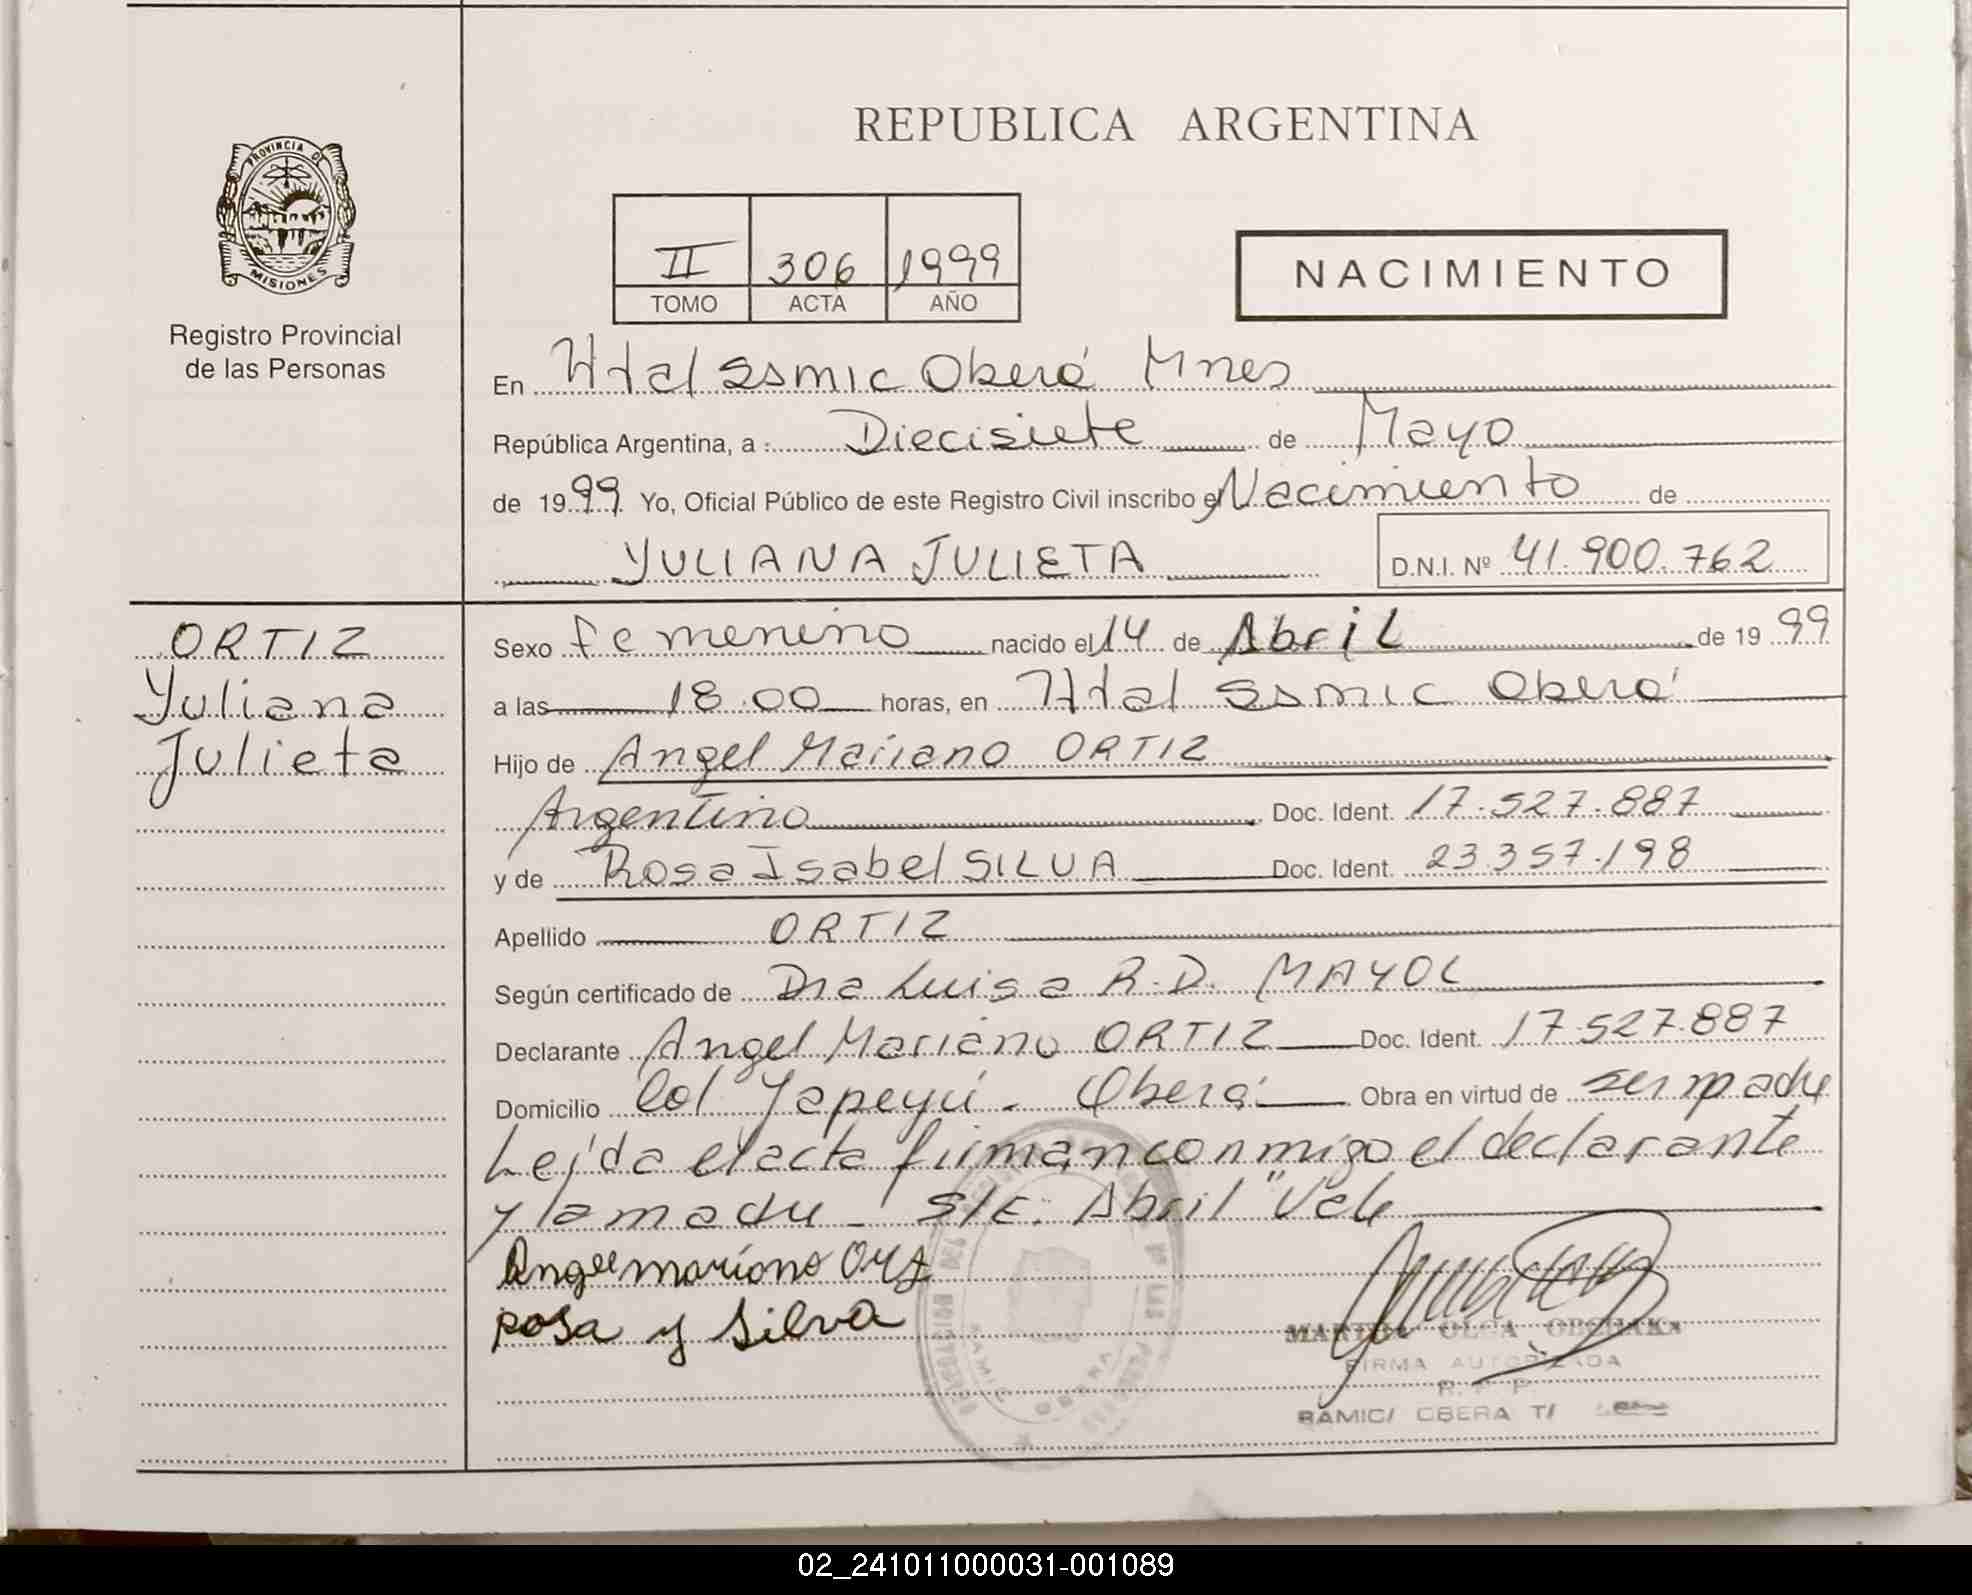 REPUBLICA ARGENTINA
PROVINCIA DE
MISIONES
Registro Provincial
de las Personas
II 306 1999
TOMO ACTA AÑO
NACIMIENTO
En Htal Ssmic Oberá Mnes
República Argentina, a : Diecisiete de Mayo
de 1999 Yo, Oficial Público de este Registro Civil inscribo el Nacimiento de
YULIANA JULIETA D.N.I. Nº 41.900.762
ORTIZ
Yuliana
Julieta
Sexo femenino nacido el 14 de Abril de 1999
a las 18.00 horas, en Htal Ssmic Oberá
Hijo de Angel Mariano ORTIZ
Argentino Doc. Ident. 17.527.887
y de Rosa Isabel SILVA Doc. Ident. 23.357.198
Apellido ORTIZ
Según certificado de Dra Luisa R.D. MAYOL
Declarante Angel Mariano ORTIZ Doc. Ident. 17.527.887
Domicilio Col Yapeyú - Oberá Obra en virtud de ser padre
Leída el acta firman conmigo el declarante
y la madre - S/E: Abril "Vale
Angel mariano Ortiz
Rosa y Silva
MARTHA OLGA
FIRMA AUTORIZADA
R. P. P.
RAMIC/ OBERA T/
02_241011000031-001089